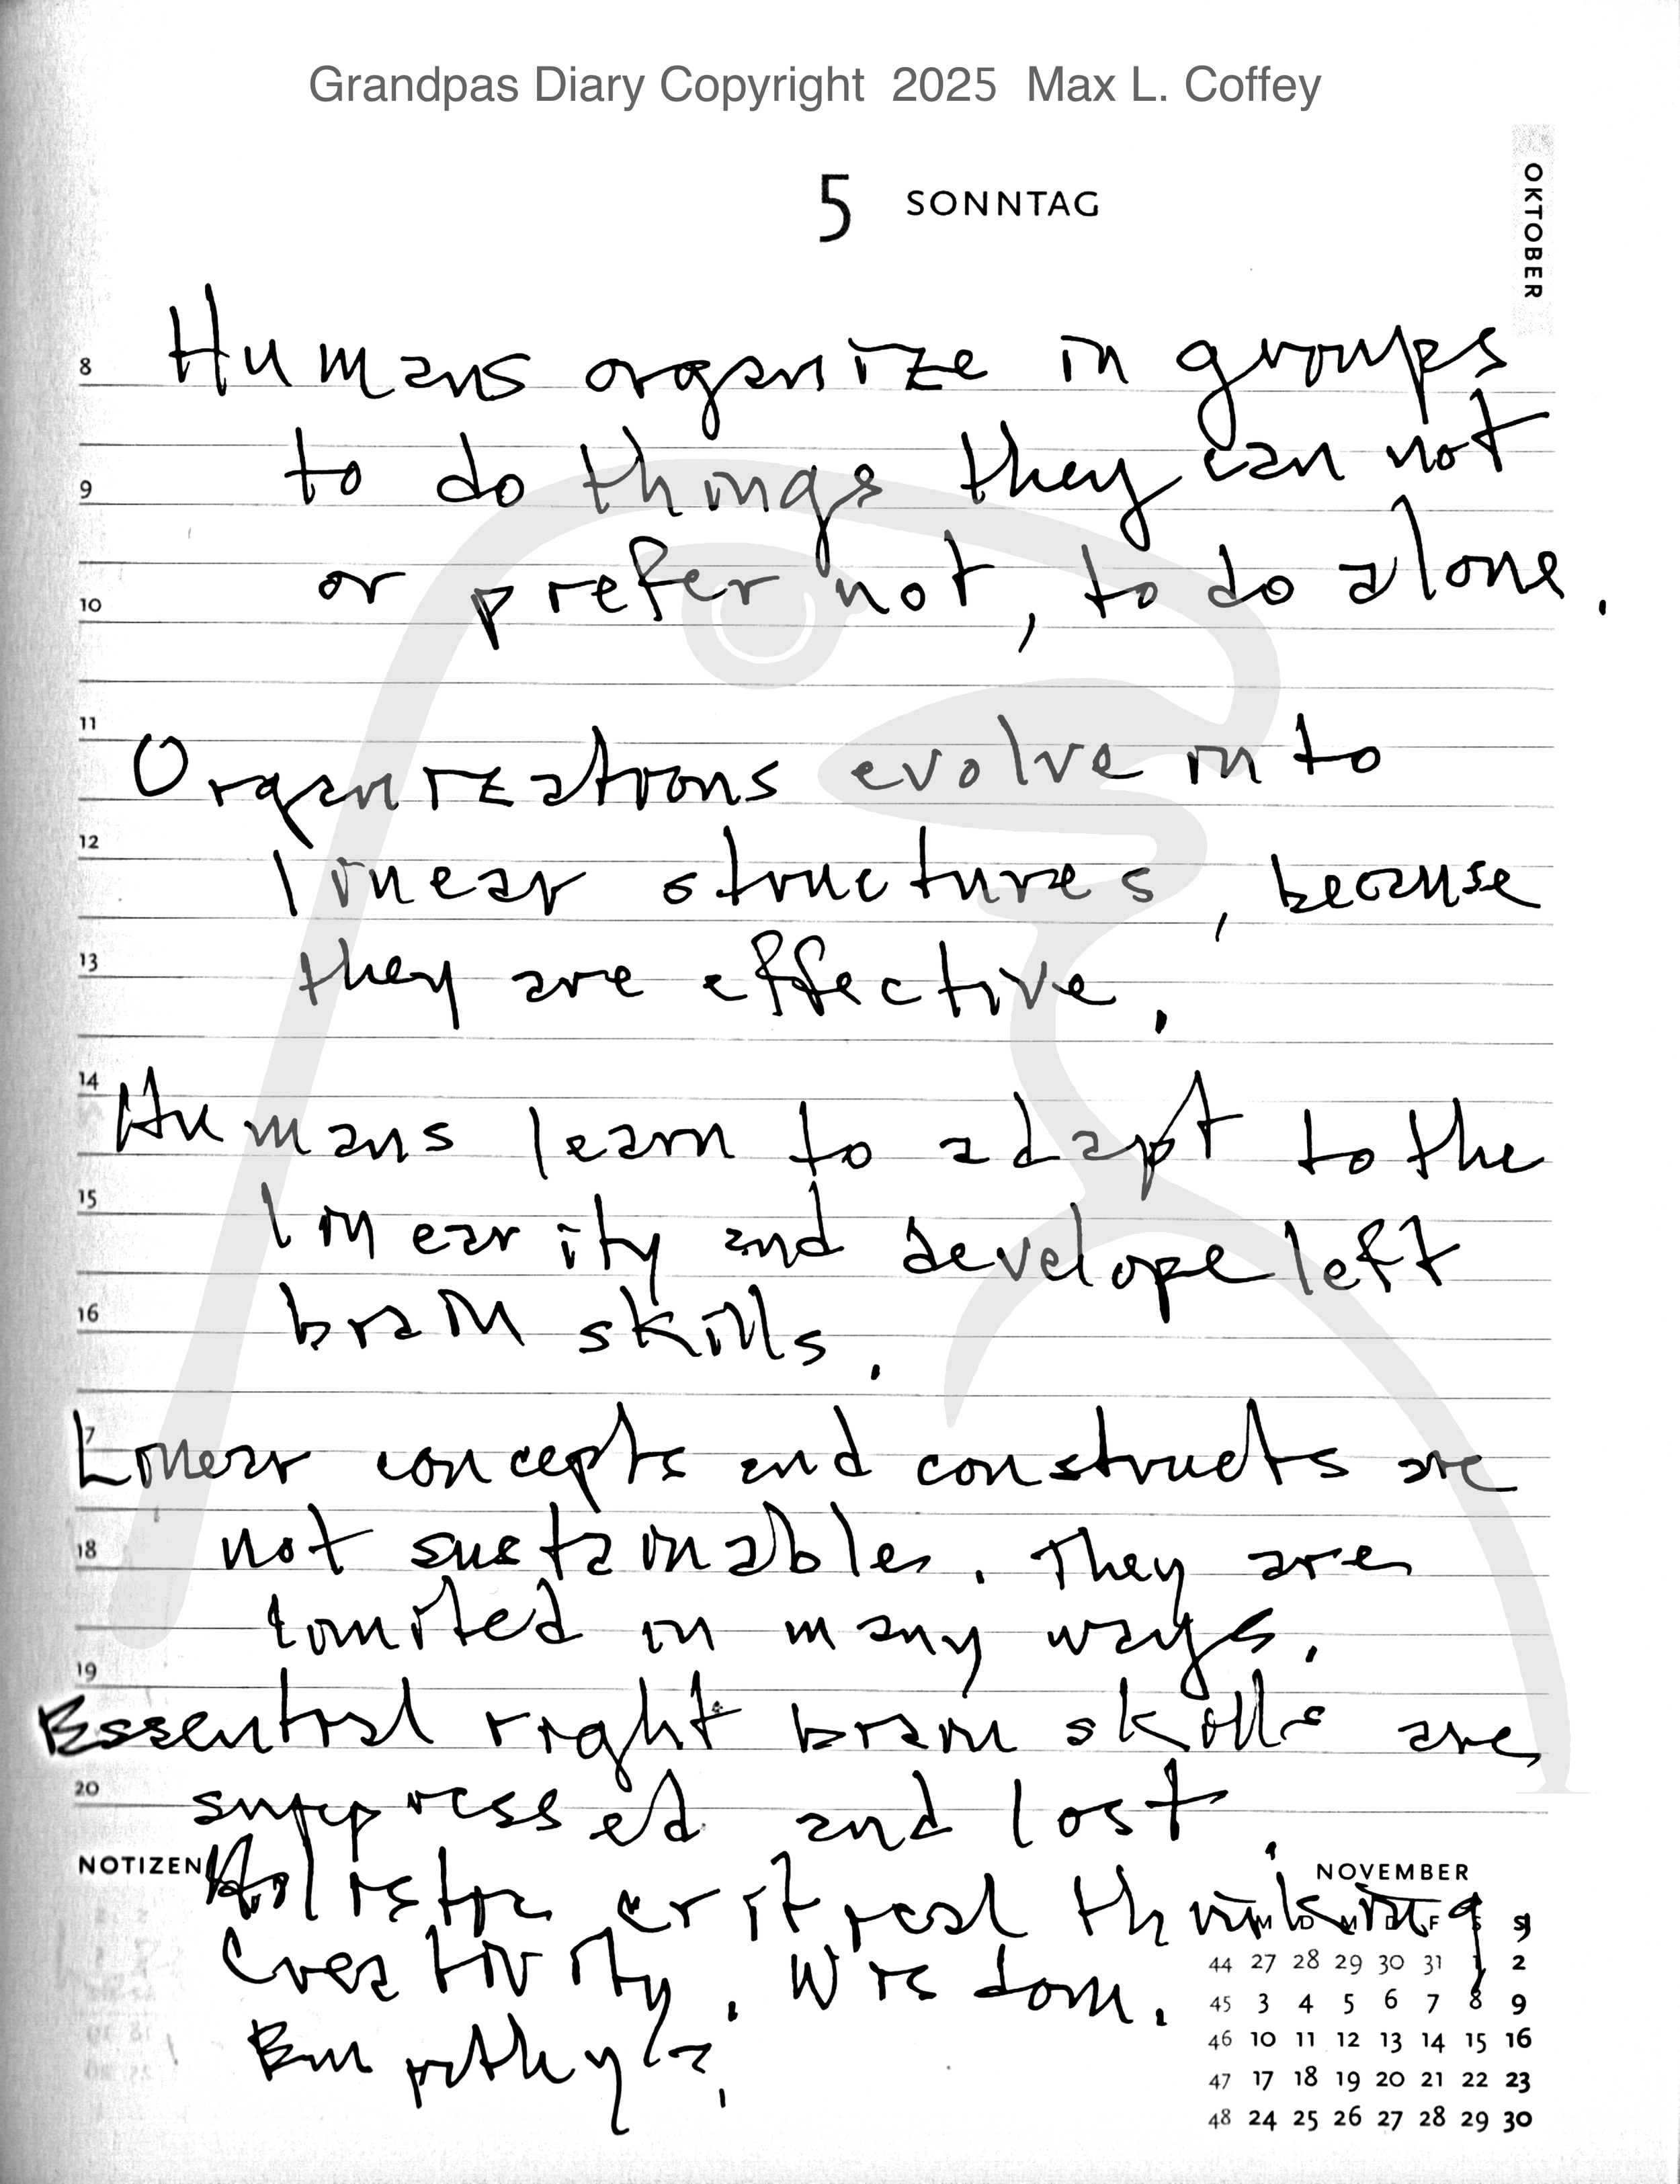 Grandpas Diary Copyright 2025 Max L. Coffey
OKTOBER
5 SONNTAG
8
Humans organize in groups
to do things they can not
9
or prefer not, to do alone.
10
11
Organizations evolve into
12
linear structures, because
13
they are effective.
14
Humans learn to adapt to the
15
linearity and develope left
16
brain skills.
17
Linear concepts and constructs are
18
not sustainable. They are
limited in many ways.
19
Essential right brain skills are
20
suppressed and lost.
NOTIZEN
Holistic critical thinking
Creativity. Wisdom.
Empathy
NOVEMBER
M D M D F S S
44 27 28 29 30 31 1 2
45 3 4 5 6 7 8 9
46 10 11 12 13 14 15 16
47 17 18 19 20 21 22 23
48 24 25 26 27 28 29 30